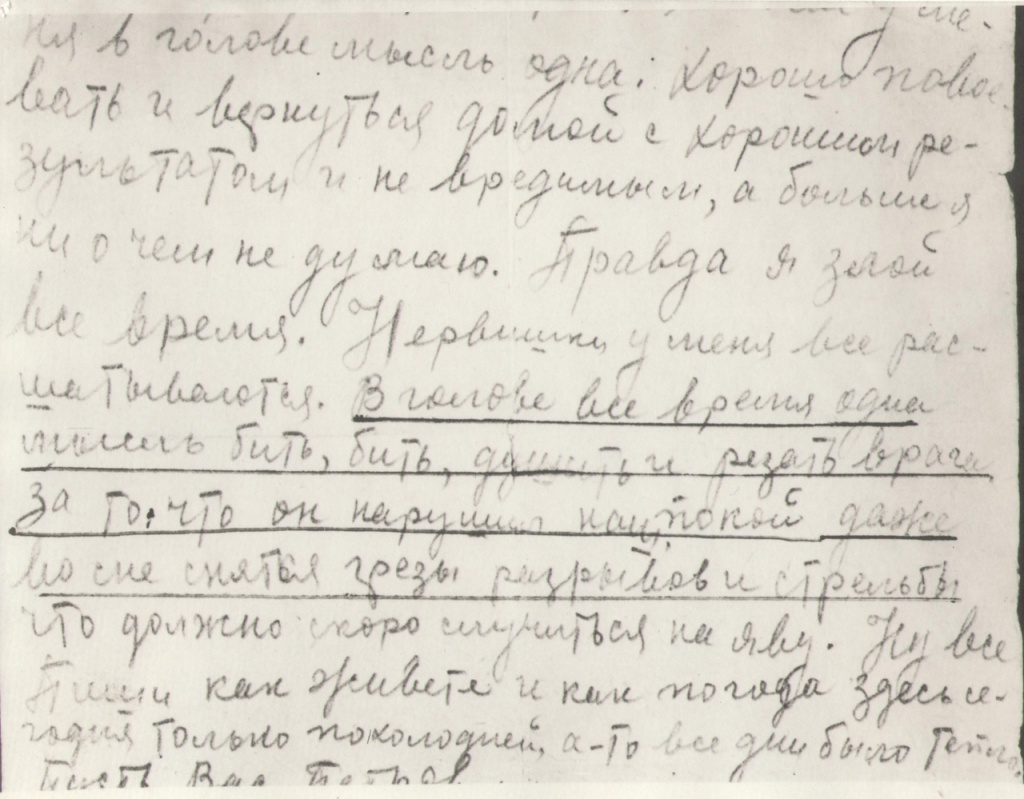 у ме-
ня в голове мысль одна: хорошо повое-
вать и вернуться домой с хорошим ре-
зультатом и не вредимым, а больше я
ни о чем не думаю. Правда я злой
все время. Нервишки у меня все рас-
шатываются. В голове все время одна
мысль бить, бить, душить и резать врага
за то что он нарушил наш покой даже
во сне снятся грезы разрывов и стрельбы
что должно скоро случиться на яву. Ну все
Пиши как живете и как погода здесь се-
годня только похолодней, а-то все дни было тепло.